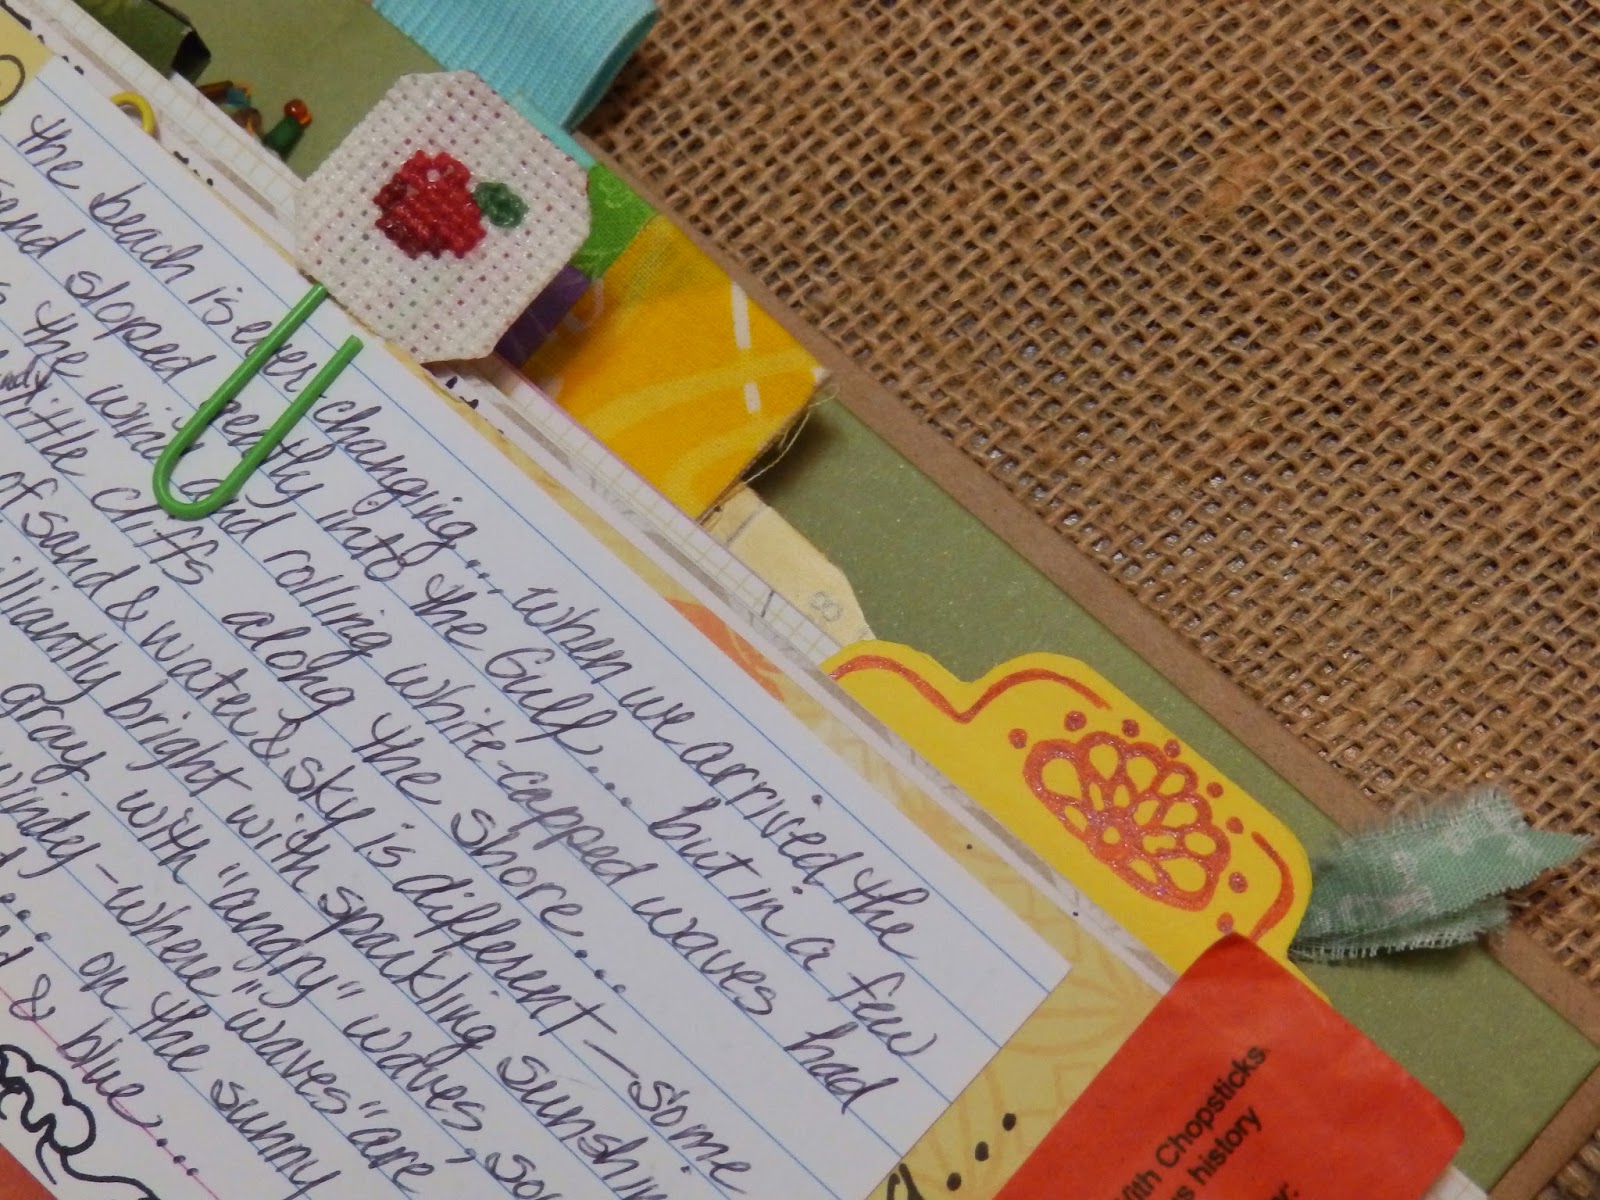 the beach is ever-changing... when we arrived the
sand sloped into the Gulf... but in a few
the wind and rolling white-capped waves had
little cliffs along the shore...
of sand & water & sky is different — some
illiantly bright with sparkling sunshin
gray with "angry" waves, so
windy - where "waves" are
... on the sunny
& blue...
With Chopsticks
history
8